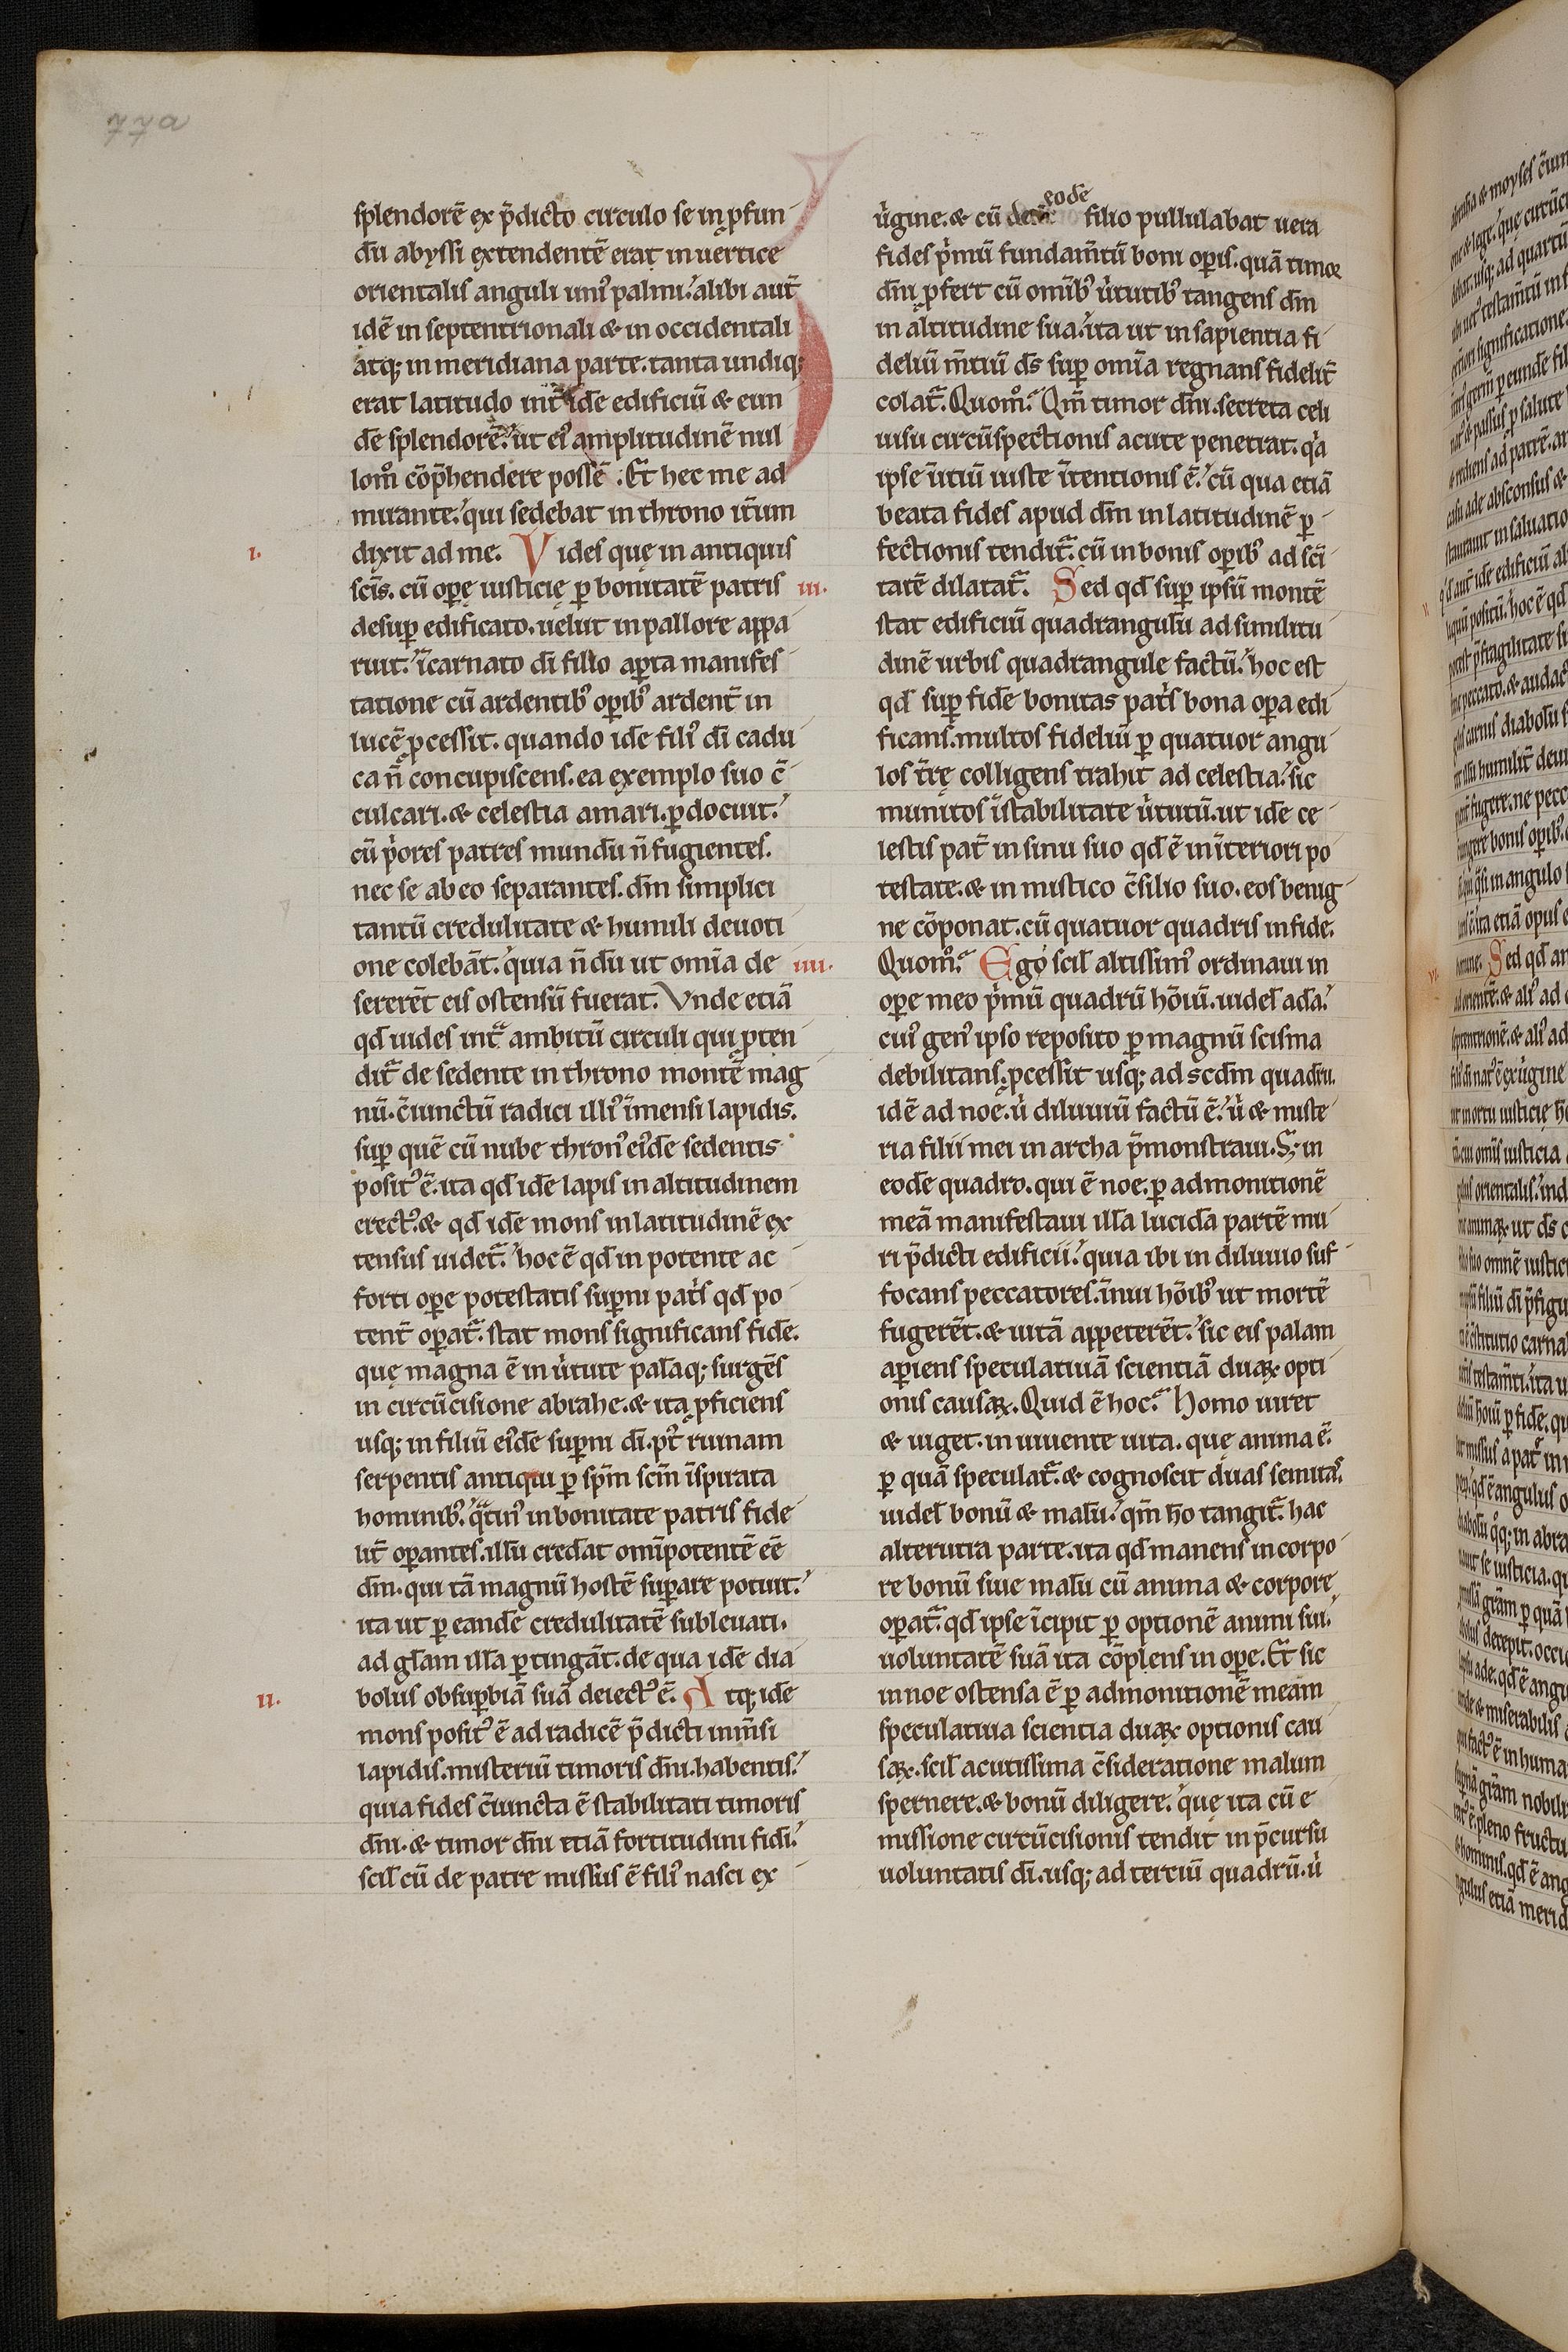 77a
splendorē ex p̄dicto circulo se in ꝓfun
dū abyssi extendentē erat in uertice
orientalis anguli uniꝰ palmi. alibi aut̄
idē in septentrionali & in occidentali
atq; in meridiana parte. tanta undiq;
erat latitudo int̄ idē edificiū & eun
dē splendorē. ut eiꝰ amplitudinē nul
lom̊ cōp̄hendere possē. Et hec me ad
mirante. qui sedebat in throno itm̄
i. dixit ad me. Vides quę in antiquis
scīs. cū opę iusticię ꝑ bonitatē patris
desuꝑ edificato. uelut in pallore appa
ruit. īcarnato dī filio aꝑta manifes
tatione cū ardentibꝰ oꝑibꝰ ardent̄ in
lucē ꝓcessit. quando idē filiꝰ dī cadu
ca n̄ concupiscens. ea exemplo suo c̄
culcari. & celestia amari. ꝑdocuit.
cū p̍ores patres mundū n̄ fugientes.
nec se ab eo separantes. dm̄ simplici
tantū credulitate & humili deuoti
one colebāt. quia n̄dū ut om̄ia de
sererēt eis ostensū fuerat. Vnde etiā
qd̄ uides int̄ ambitū circuli qui ꝓten
dit᷑ de sedente in throno montē mag
nū. c̄iunctū radici illiꝰ īmensi lapidis.
suꝑ quē cū nube thronꝰ eiꝰdē sedentis
positꝰ ē. ita qd̄ idē lapis in altitudinem
erectꝰ. & qd̄ idē mons in latitudinē ex
tensus uidet᷑. hoc ē qd̄ in potente ac
forti oꝑe potestatis suꝑni pat̍s qd̄ po
tent̄ oꝑat᷑. stat mons significans fidē.
quę magna ē in u̍tute palāq; surgēs
in circūcisione abrahe. & ita ꝓficiens
usq; in filiū eiꝰdē suꝑni dī. pt̄ ruinam
serpentis antiqui ꝑ spm̄ scm̄ īspirata
hominibꝰ. qᷓtinꝰ in bonitate patris fide
lit̄ oꝑantes. illū credāt om̄ipotentē eē
dm̄. qui tā magnū hostē suꝑare potuit.
ita ut ꝑ eandē credulitatē subleuati.
ad gl̄am illā ꝑtingāt. de qua idē dia
ii. bolus ob suꝑbiā suā deiectꝰ ē. Atq; idē
mons positꝰ ē ad radicē p̄dicti inm̄si
lapidis. misteriū timoris dn̄i. habentis.
quia fides c̄iuncta ē stabilitati timoris
dn̄i. & timor dn̄i etiā fortitudini fidī.
scil̄ cū de patre missus ē filiꝰ nasci ex
u̍gine. & cū eodē filio pullulabat uera
fides p̍mū fundam̄tū boni oꝑis. quā timor
dn̄i ꝓfert cū om̄ibꝰ u̍tutibꝰ tangens dm̄
in altitudine sua. ita ut in sapientia fi
deliū m̄tiū ds̄ suꝑ om̄ia regnans fidelit̄
colat᷑. Quom̊. Qm̄ timor dn̄i. secreta celi
uisu circūspectionis acute penetrat. qa̍
ipse īitiū iuste ītentionis ē. cū qua etiā
beata fides apud dm̄ in latitudinē ꝑ
fectionis tendit᷑. cū in bonis oꝑibꝰ ad scī
iii. tatē dilatat᷑. Sed qd̄ suꝑ ipsū montē
stat edificiū quadrangulū ad similitu
dinē urbis quadrangule factū. hoc est
qd̄ suꝑ fidē bonitas pat̍s bona oꝑa edi
ficans. multos fideliū ꝑ quatuor angu
los t̄rę colligens trahit ad celestia. sic
munitos īstabilitate u̍tutū. ut idē ce
lestis pat̄ in sinu suo qd̄ ē in īteriori po
testate. & in mistico c̄silio suo. eos benig
ne cōponat. cū quatuor quadris in fide.
iiii. Quom̊. Ego scil̄ altissimꝰ ordinaui in
oꝑe meo p̍mū quadrū hōiū. uidel̄ adā.
cuiꝰ genꝰ ipso reposito ꝑ magnū scisma
debilitans. ꝓcessit usq; ad scd̄m quadrū.
idē ad noe. u̍ diluuiū factū ē. u̍ & miste
ria filii mei in archa p̄monstraui. S; in
eodē quadro. qui ē noe. ꝑ admonitionē
meā manifestaui illā lucidā partē mu
ri p̄dicti edificii. quia ibi in diluuio suf
focans peccatores. īnui hōibꝰ ut mortē
fugerēt. & uitā appeterēt. sic eis palam
aꝑiens speculatiuā scientiā duaꝝ opti
onis causaꝝ. Quid ē hoc. Homo uiret
& uiget. in uiuente uita. quę anima ē.
ꝑ quā speculat᷑. & cognoscit duas semitas.
uidel̄ bonū & malū. qm̄ hō tangit᷑ hac
alterutra parte. ita qd̄ manens in corpo
re bonū siue malū cū anima & corpore
oꝑat᷑. qd̄ ipse īcipit ꝑ optionē animi sui.
uoluntatē suā ita cōplens in oꝑe. Et sic
in noe ostensa ē ꝑ admonitionē meam
speculatiua scientia duaꝝ optionis cau
saꝝ. scil̄ acutissima c̄sideratione malum
spernere. & bonū diligere. quę ita cū e
missione circūcisionis tendit in p̄cursu
uoluntatis dī. usq; ad terciū quadrū. u̍